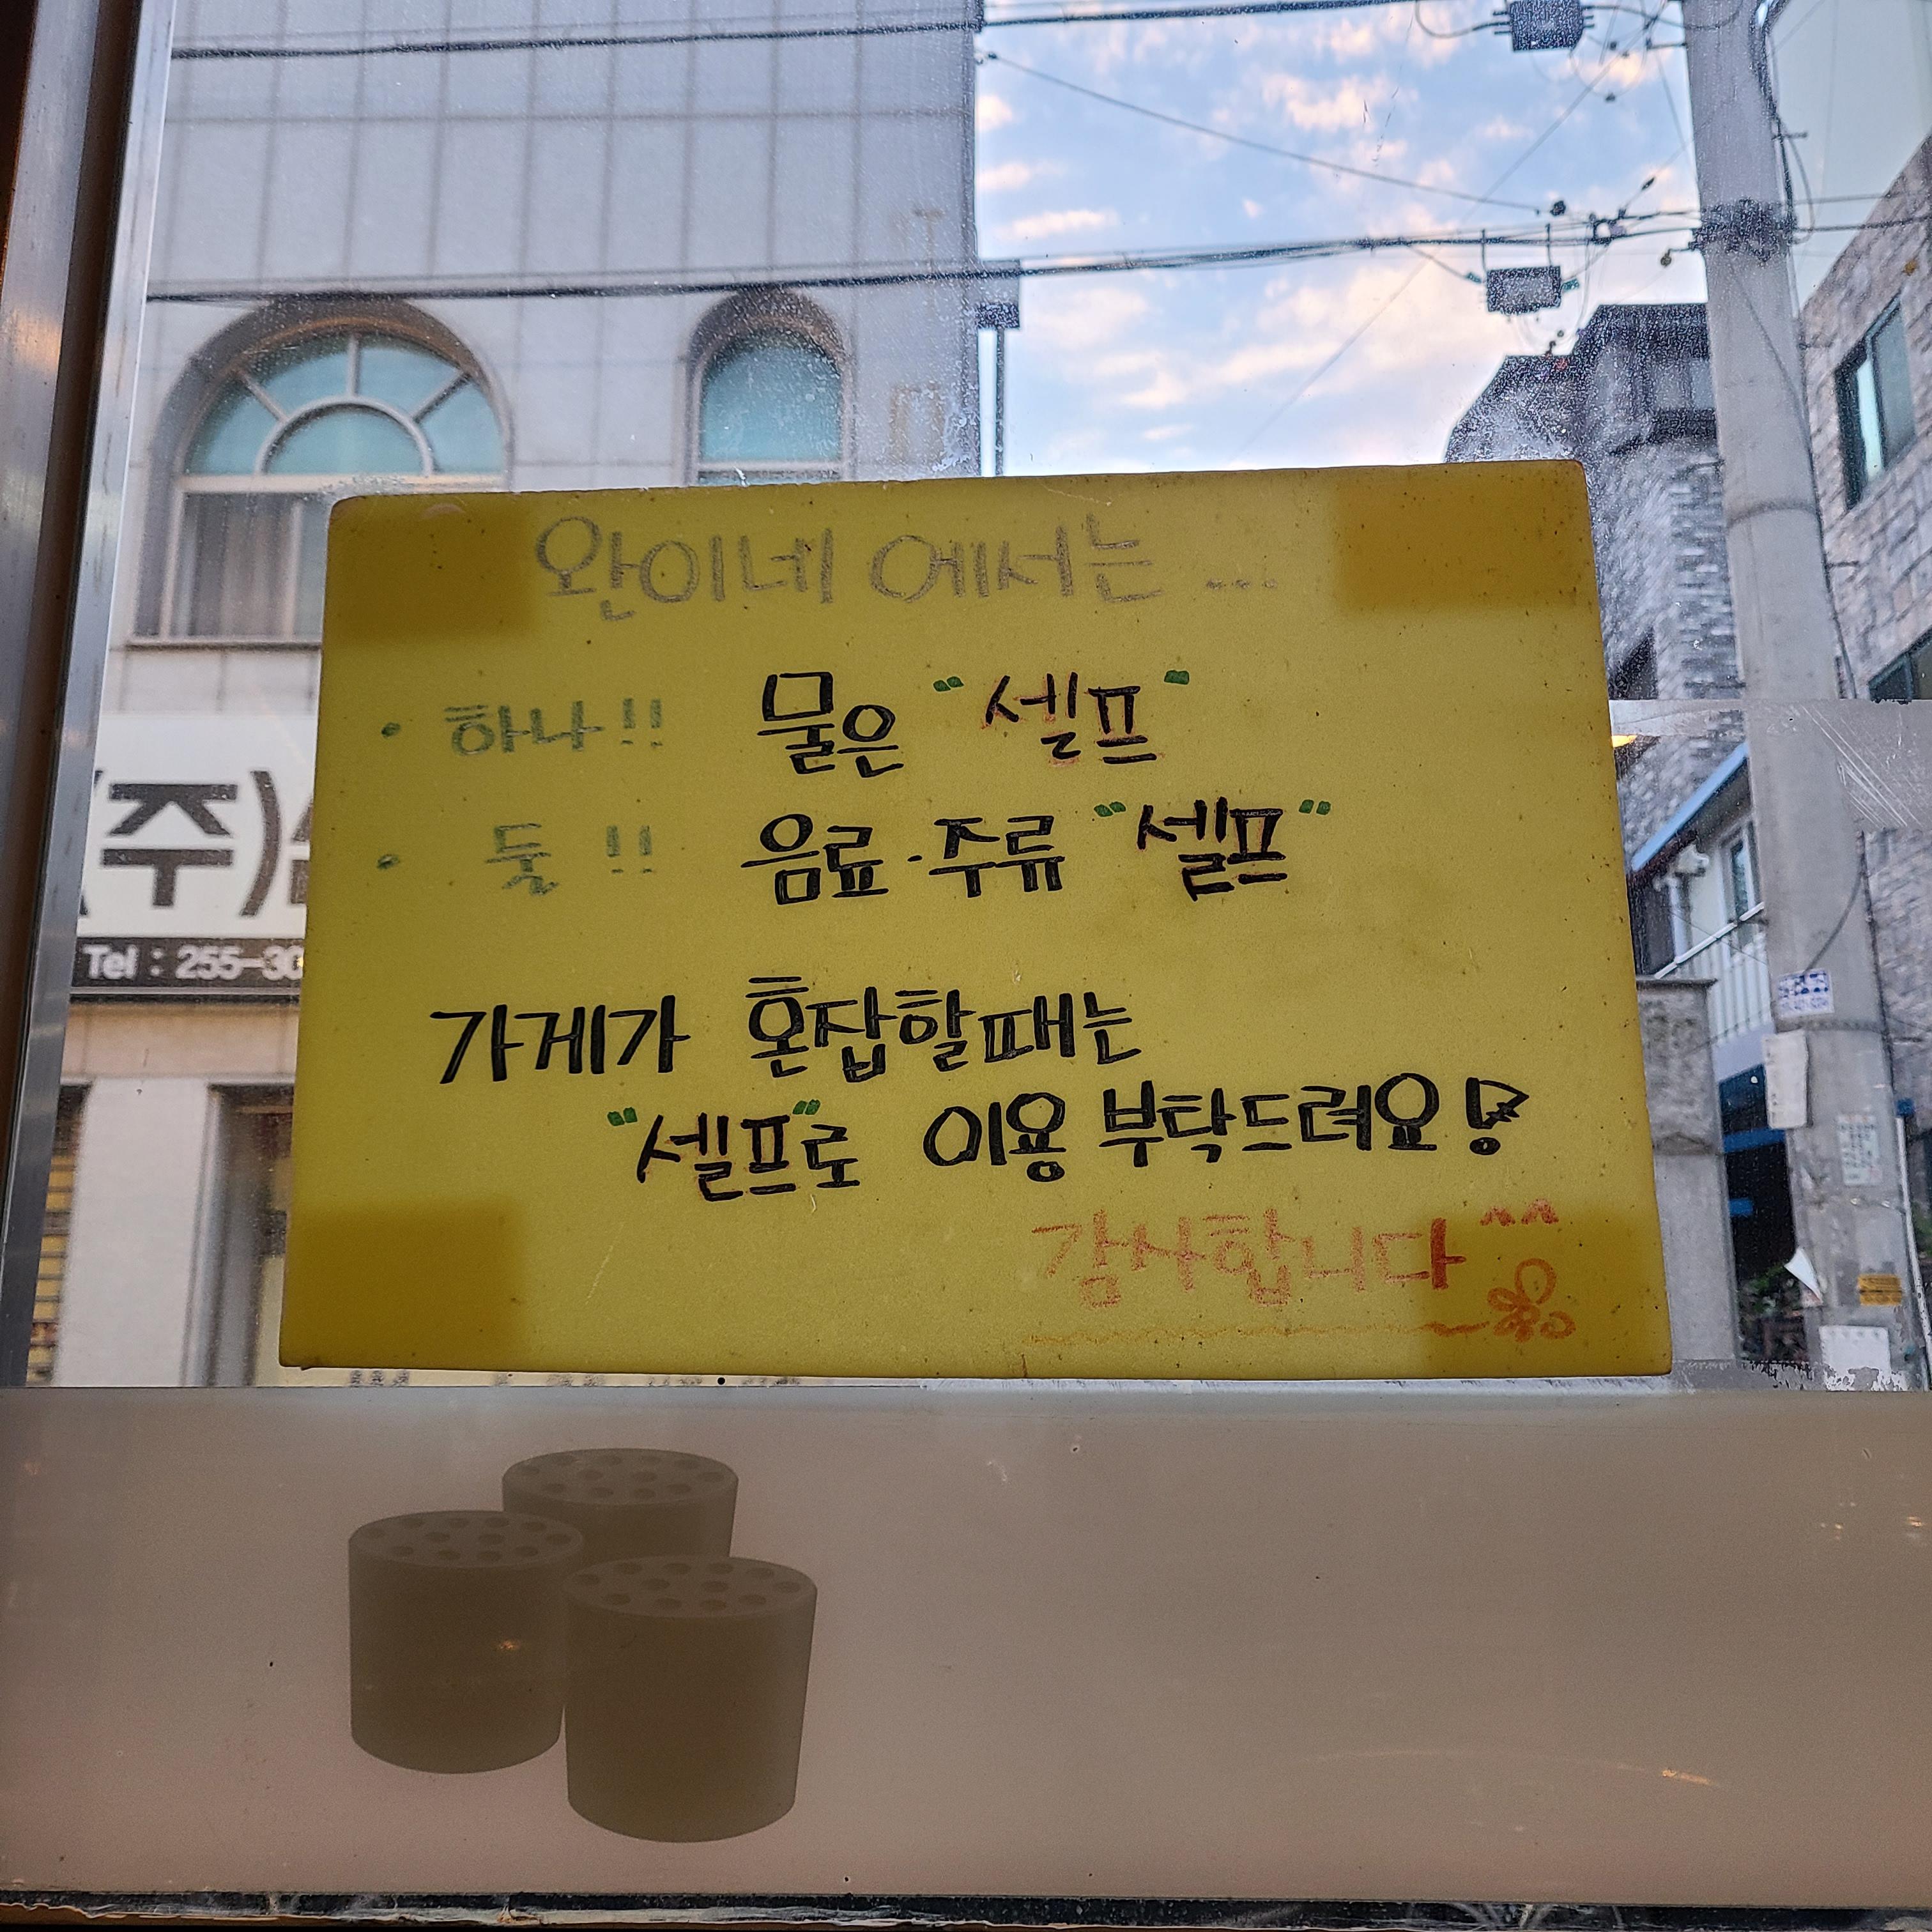 완이네 에서는...
• 하나!! 물은 "셀프"
• 둘!! 음료·주류 "셀프"
가게가 혼잡할때는
"셀프"로 이용 부탁드려요!
감사합니다 ^^
(주)
Tel : 255-30